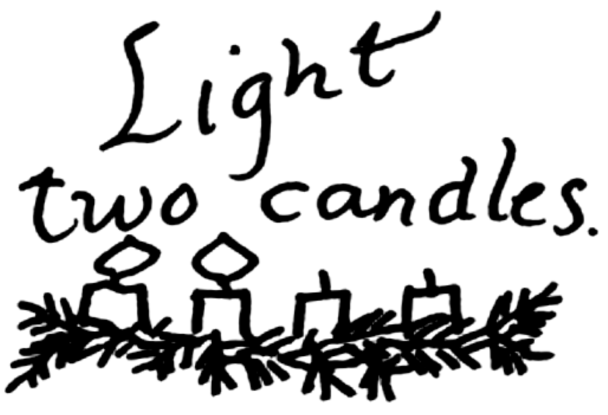 Light
two candles.